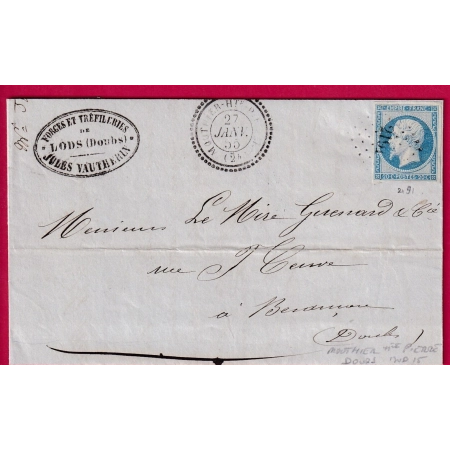 FORGES ET TRÉFILERIES
DE
LODS (Doubs)
JULES VAUTHERIN
27
JANV.
55
(24)
EMPIRE FRANC.
20 C. POSTES 20 C.
Monsieur Le Miré Guenard & Cie
rue
à Besançon
(Doubs)
MOUTHIER HTE PIERRE
DOUBS IND 15